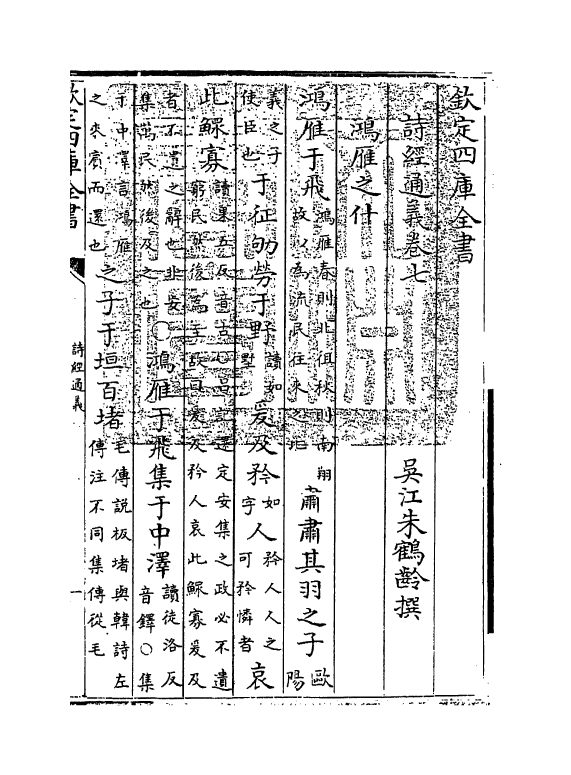 欽定四庫全書
詩經通義卷七 吳江朱鶴齡撰
鴻雁之什
鴻雁于飛鴻雁春則北徂秋則南翔故以為流民往來之比肅肅其羽之子歐陽
義之子使臣也于征劬勞于野讀如墅爰及矜如字人矜人人之可矜憐者哀
此鰥寡讀果五反音古○呂記還定安集之政必不遺窮民然後為至故曰爰及矜人哀此鰥寡爰及
者不遺之辭也非安集萬民然後及之也○鴻雁于飛集于中澤讀徒洛反音鐸○集
于中澤言鴻雁之來賓而還也之子于垣百堵毛傳說板堵與韓詩左傳注不同集傳從毛
欽定四庫全書 詩經通義 一